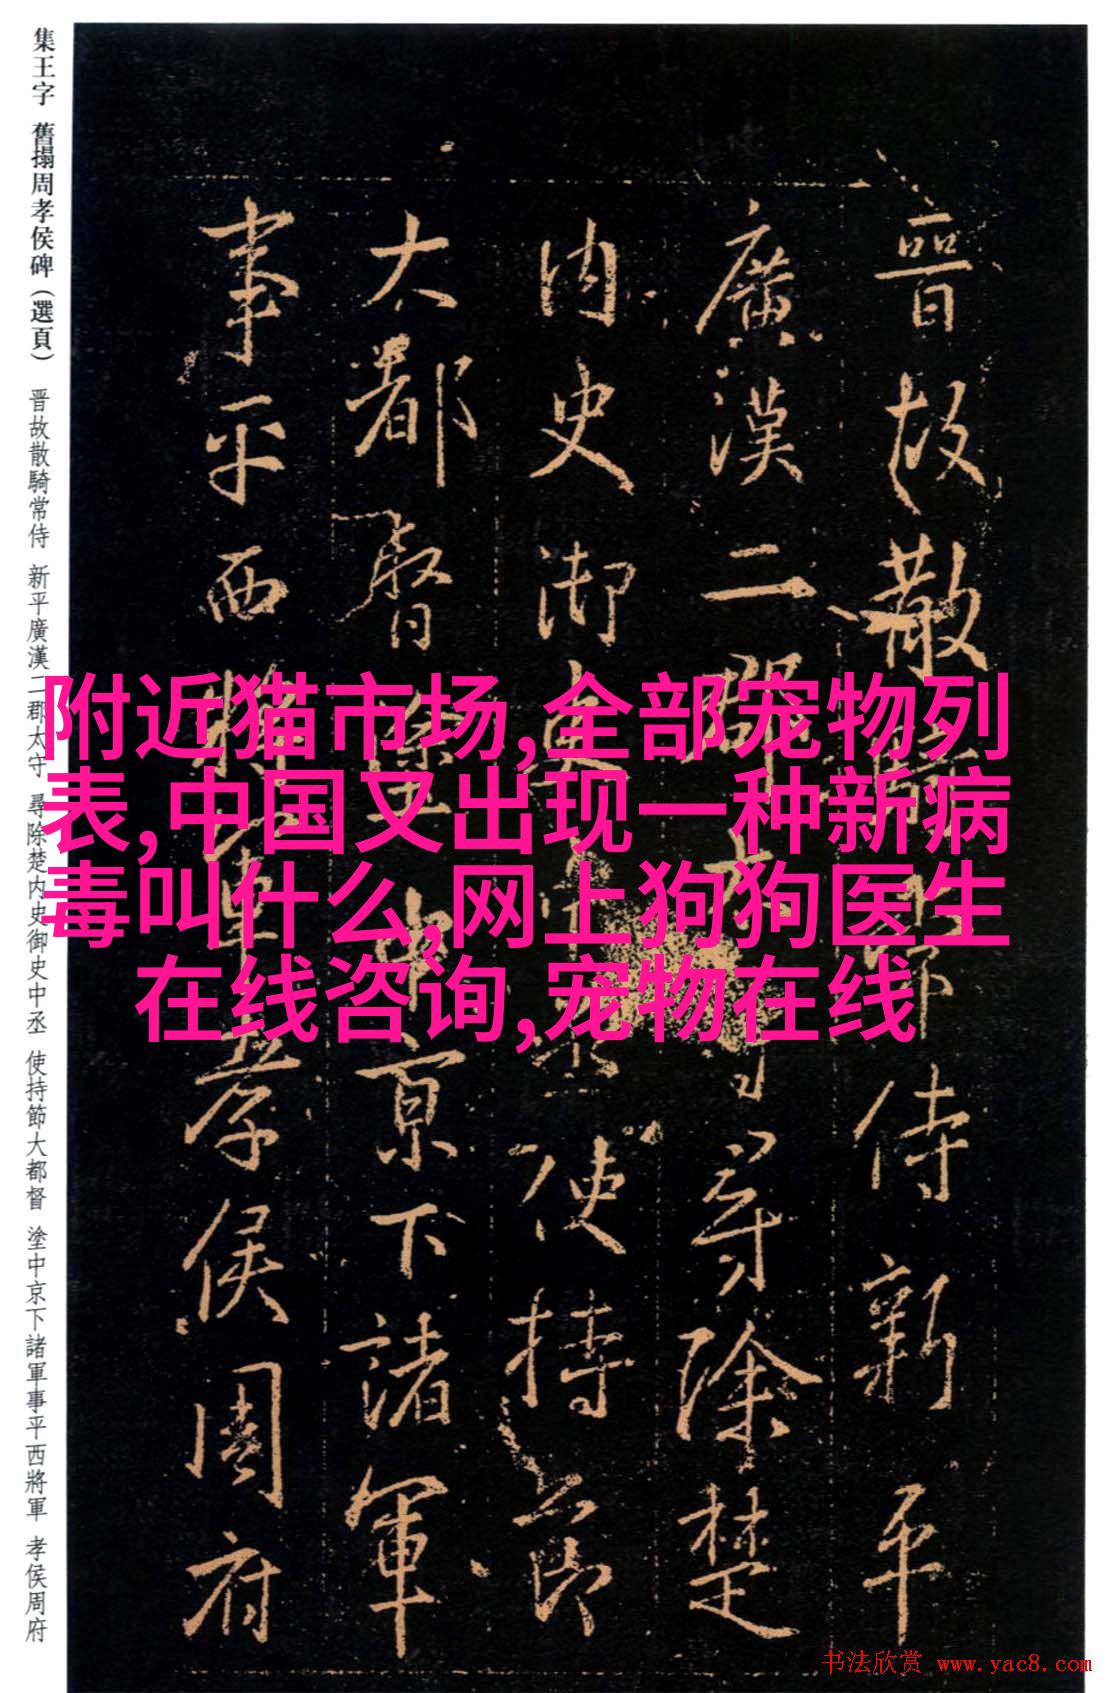 集王字 舊搨周孝侯碑(選頁) 晋故散騎常侍 新平廣漢二郡太守 尋除楚内史御史中丞 使持節大都督 塗中京下諸軍事平西將軍 孝侯周府
晉故散騎常侍新平
廣漢二郡太守尋除楚
内史御史中丞使持節
大都督塗中京下諸軍
事平西將軍孝侯周府
附近猫市场,全部宠物列
表,中国又出现一种新病
毒叫什么,网上狗狗医生
在线咨询,宠物在线
书法欣赏 www.yac8.com